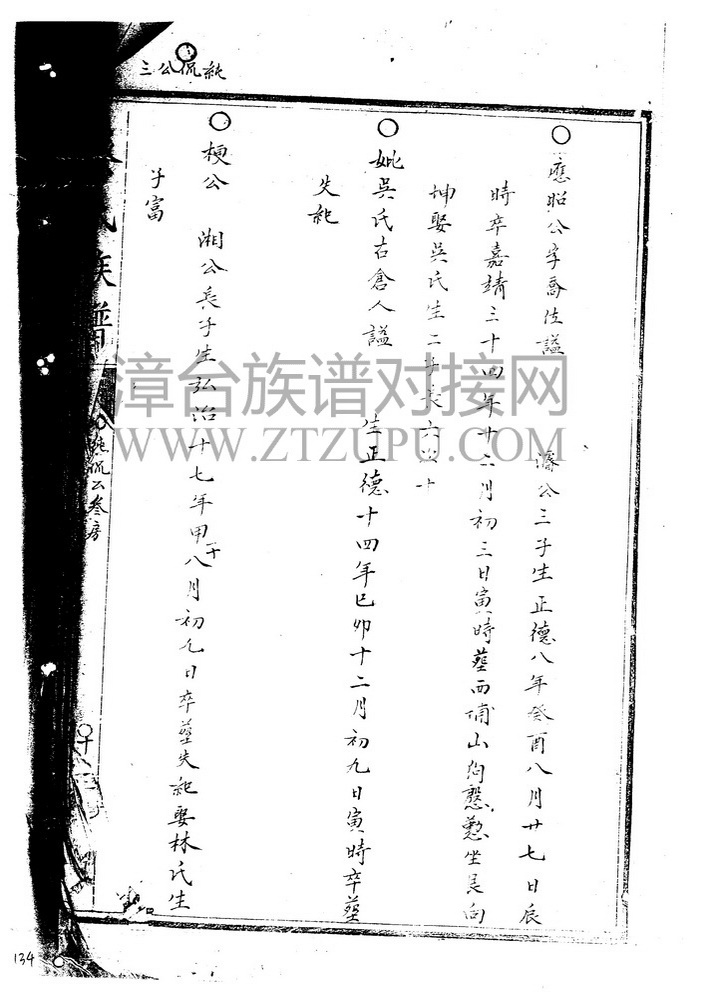 三公侃純
應昭公字喬位謚 濬公三子生正德八年癸酉八月廿七日辰
時卒嘉靖三十四年十二月初三日寅時葬西埔山狗懸懃坐艮向
坤娶吳氏生二子長六次十
妣吳氏右倉人謚 生正德十四年己卯十二月初九日寅時卒葬
失紀
梗公 湘公長子生弘治十七年甲子八月初九日卒葬失紀娶林氏生
子富
族譜
純侃公叁房
134
漳台族谱对接网
WWW.ZTZUPU.COM